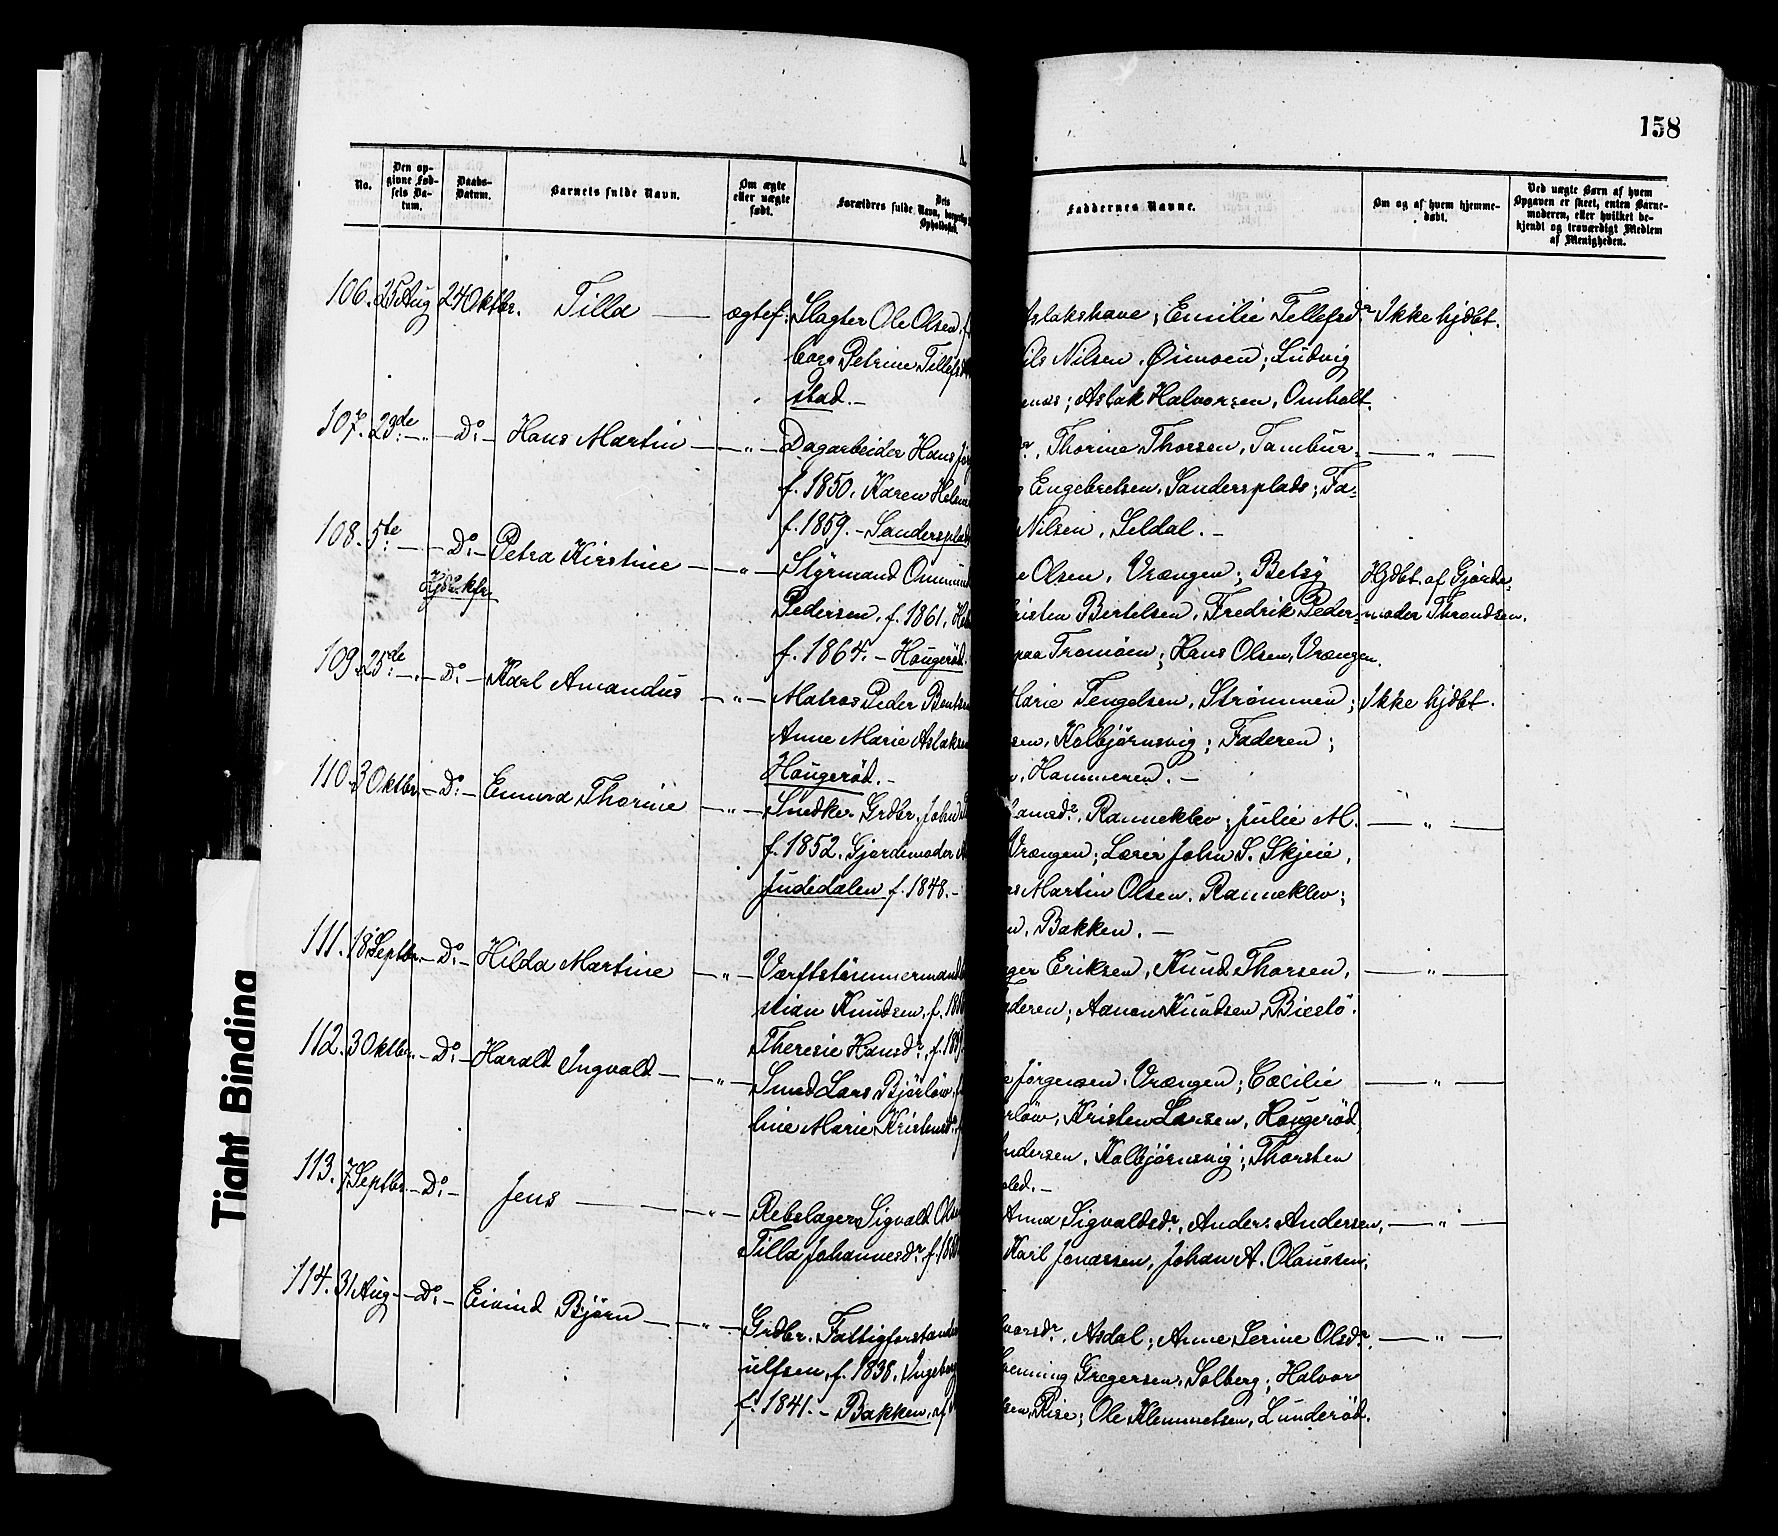 158
No.
Den op-
givne Fød-
sels Da-
tum.
Daabs-
Datum.
Barnets fulde Navn.
Om ægte
eller uægte
født.
Dets
Forældres fulde Navn, borgerlig
Opholdssted.
Faddernes Navne.
Om og af hvem hjemme-
døbt.
Ved uægte Børn af hvem
Opgaven er skeet, enten Barne-
moderen, eller hvilket be-
kjendt og troværdigt Medlem
af Menigheden.
106. 25 Aug 24 Oktbr. Tilla — ægtef. Slagter Ole Olsen, f
Petrine Tellefsd
stad. -
Aslakshave; Emilie Tellefsdr
Nilsen, Øimoen; Ludvig
Aslak Halvorsen, Omholt.
Ikke hjdbt.
107. 29de - " - Do. - Hans Martin — " — Dagarbeider Hans Jør
f. 1850, Karen Helen
f. 1859. - Sandersplads
Thorine Thorsen, Tambur-
Engebretsen, Sandersplads; Fa-
Nilsen, Seldal. -
— " —
108. 5te - - Do. - Petra Kirstine — " — Styrmand
Hjdbt.
Pedersen, f. 1861,
f. 1864. - Hougerød.
Olsen, Vrængen; Betsy
Kristen Bertelsen, Fredrik Peder-
paa Tromøen; Hans Olsen, Vrængen.
Hjdbt. af Gjorde-
moder Throndsen.
109. 25de - " - Do. - Karl Amandus — " — Matros Peder Bentsen
Anne Marie Aslaksen
Hougerød. -
Marie Tengelsen, Strømmen;
sen, Kolbjørnsvig; Faderen;
Hammeren. -
Ikke hjdbt.
110. 3 Oktbr. - Do. - Emma Thorine — " — Snedker. Grdbr. John
f. 1852. Gjordemoder
Judedalen f. 1848. -
Hansdr, Ranneklev; Julie M.
Vrængen; Lærer John S. Skjeie,
Martin Olsen, Ranneklev;
Bakken. -
— " —
111. 18 Septbr. - Do. - Hilda Martine — " — Værftstømmermand
stian Knudsen, f. 18
Theresie Hansdr, f. 18
Eriksen, Knud Thorsen,
Faderen; Aanon Knudsen, Biestø.
— " —
112. 3 Oktbr. - Do. - Harald Ingvald — " — Smed Lars Bjørløw,
line Marie Kristensdr,
Jørgensen, Vrængen; Cæcilie
Kristen Larsen, Hougerød,
Andersen, Kolbjørnsvig; Thorsten
— " —
113. 7 Septbr. - Do. - Jens — " — Rebslager Sigvald Olsen
Tilla Johannesdr f. 18
Anna Sigvaldsdr, Anders Andersen,
Karl Jonassen, Johan A. Olaussen;
— " —
114. 31 Aug - - Do. - Eivind Bjørn — " — Grdbr. Fattigforstander
ulfsen, f. 1838, Ingeborg
f. 1841. - Bakken, af
Asdal; Anne Serine Olsdr.
Henning Gregersen, Solberg; Halvor
Rise; Ole Klemmetsen, Lunderød.
— " —
Tight Binding